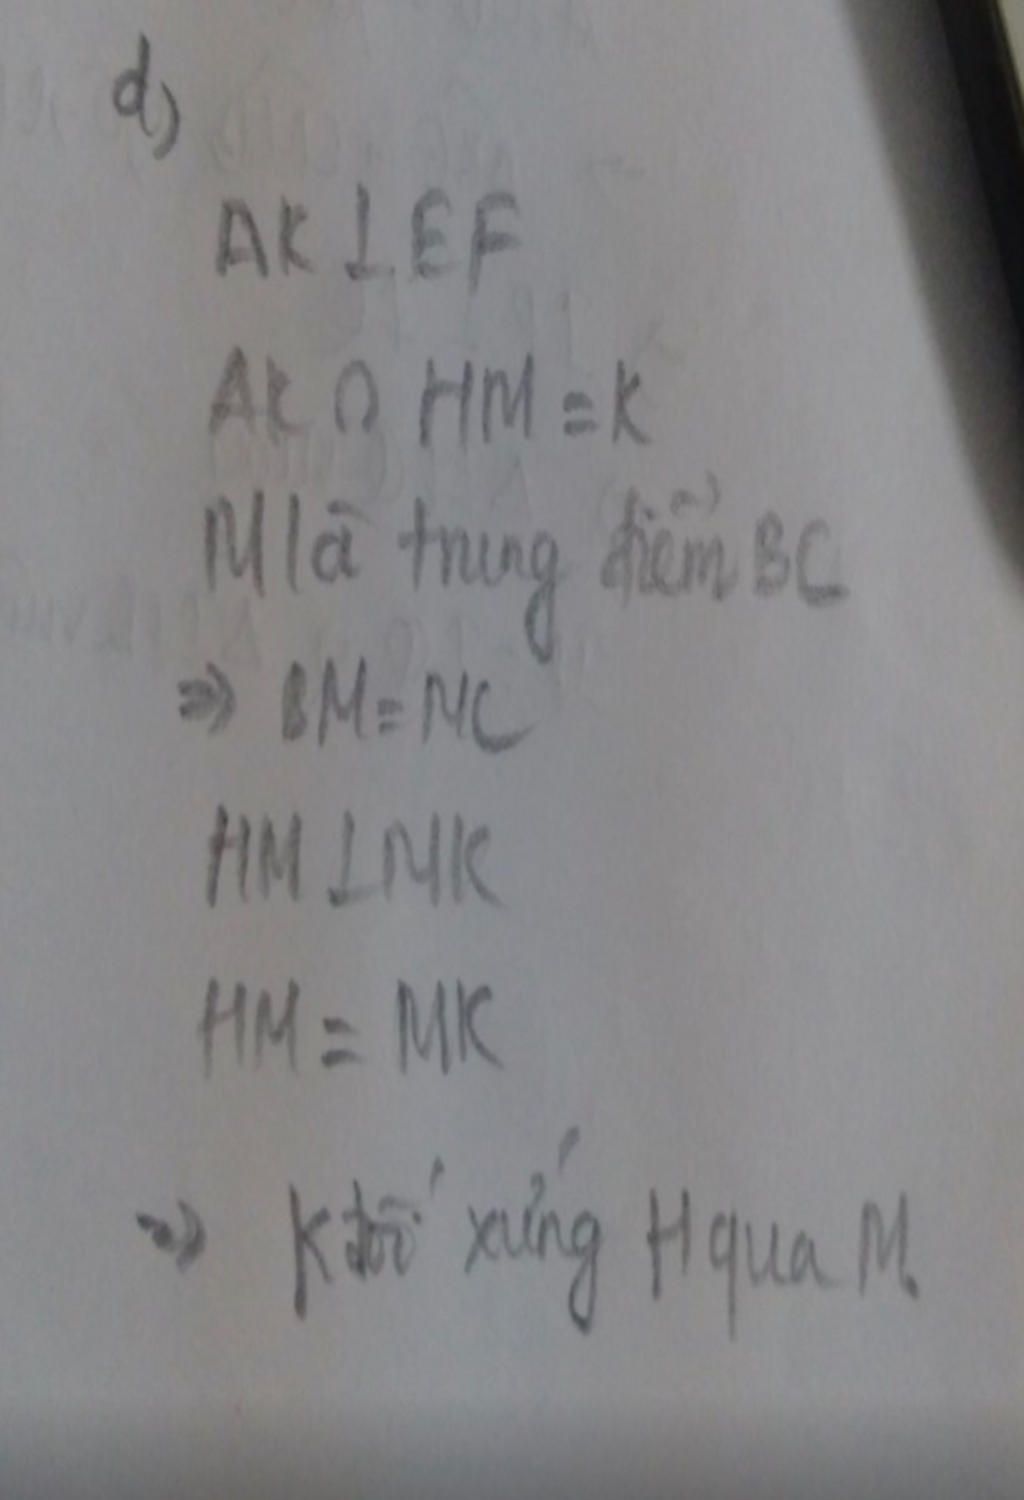 d)
AK ⊥ EF
AK ∩ HM = K
M là trung điểm BC
=> BM = MC
HM ⊥ MK
HM = MK
=> K đối xứng H qua M.